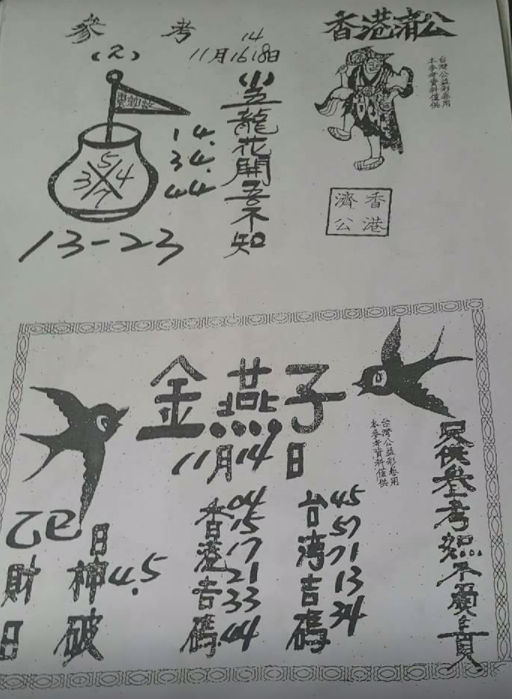 參考
(2)
14
11月16 18日
香港濟公
台灣公益彩卷用
本參考資料僅供
龍花開吾不知
14.
34.
44.
5
3 4
7
13-23
香港
濟公
金燕子
11月14日
台灣公益彩卷用
本參考資料僅供
只供參考恕不負責
台湾吉碼
45
57
71
13
34
香港吉碼
04
15
17
21
33
44
乙巳日
財神4.5
日破